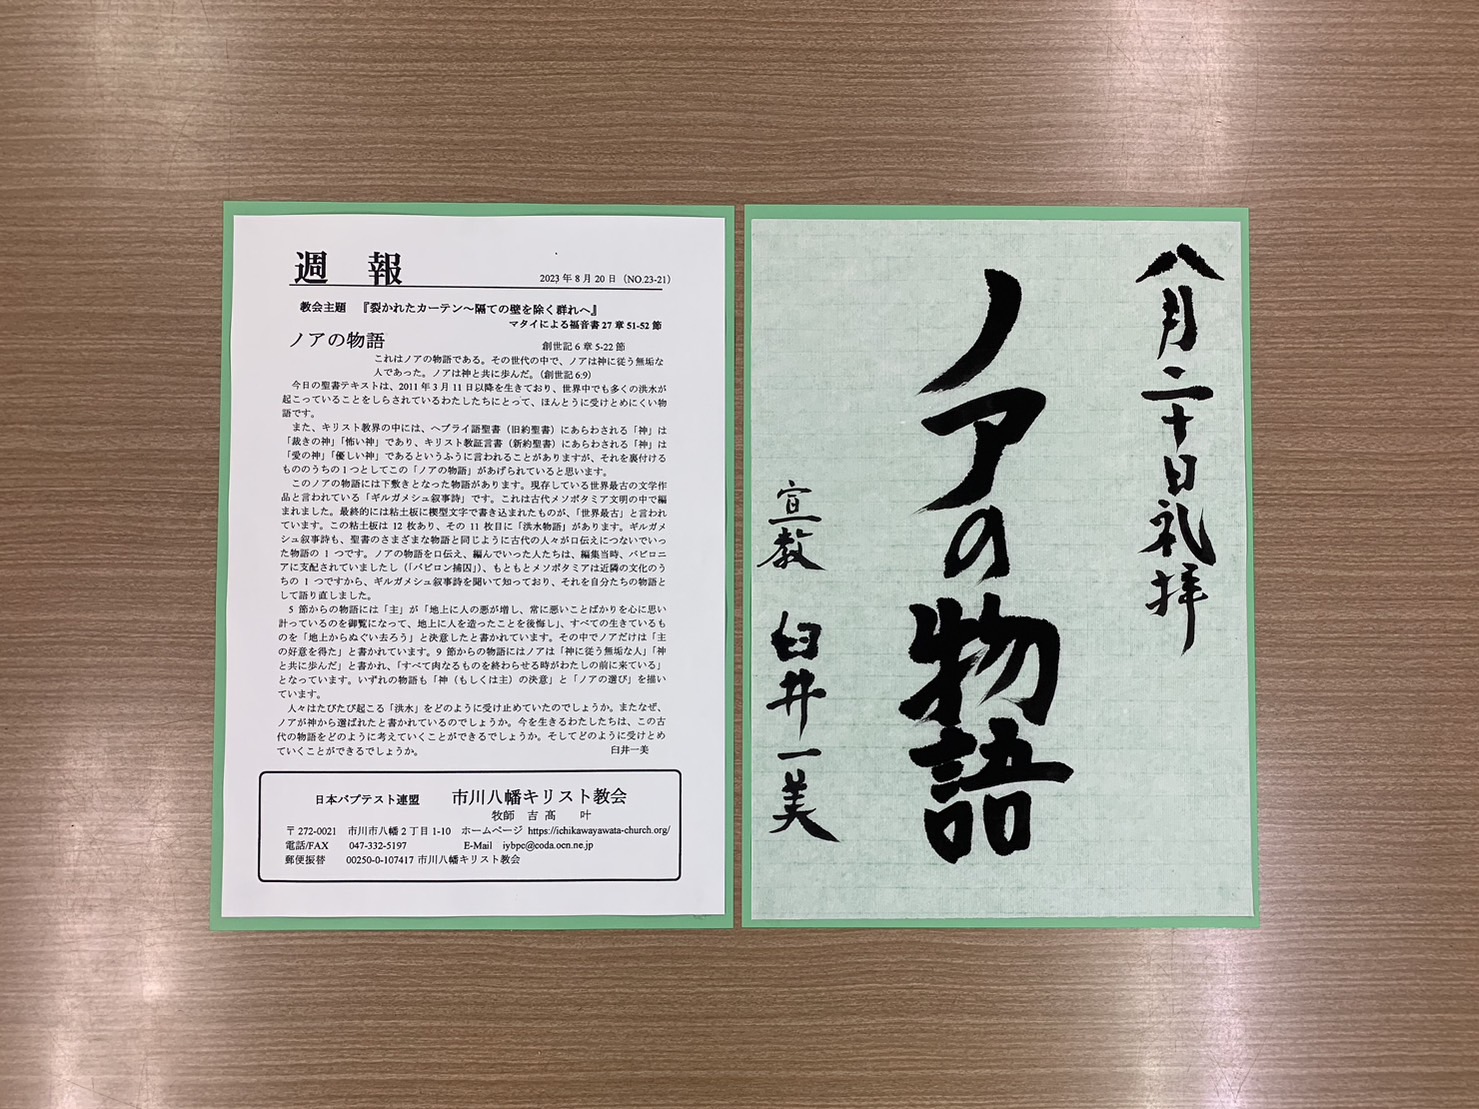 週 報
2023 年 8 月 20 日（NO.23-21）
教会主題 『裂かれたカーテン～隔ての壁を除く群れへ』
マタイによる福音書 27 章 51-52 節
ノアの物語
創世記 6 章 5-22 節
これはノアの物語である。その世代の中で、ノアは神に従う無垢な
人であった。ノアは神と共に歩んだ。（創世記 6:9）
今日の聖書テキストは、2011 年 3 月 11 日以降を生きており、世界中でも多くの洪水が
起こっていることをしらされているわたしたちにとって、ほんとうに受けとめにくい物
語です。
また、キリスト教界の中には、ヘブライ語聖書（旧約聖書）にあらわされる「神」は
「裁きの神」「怖い神」であり、キリスト教証言書（新約聖書）にあらわされる「神」は
「愛の神」「優しい神」であるというふうに言われることがありますが、それを裏付ける
もののうちの 1 つとしてこの「ノアの物語」があげられていると思います。
このノアの物語には下敷きとなった物語があります。現存している世界最古の文学作
品と言われている「ギルガメシュ叙事詩」です。これは古代メソポタミア文明の中で編
まれました。最終的には粘土板に楔型文字で書き込まれたものが、「世界最古」と言われ
ています。この粘土板は 12 枚あり、その 11 枚目に「洪水物語」があります。ギルガメ
シュ叙事詩も、聖書のさまざまな物語と同じように古代の人々が口伝えにつないでいっ
た物語の 1 つです。ノアの物語を口伝え、編んでいった人たちは、編集当時、バビロニ
アに支配されていましたし（「バビロン捕囚」）、もともとメソポタミアは近隣の文化のう
ちの 1 つですから、ギルガメシュ叙事詩を聞いて知っており、それを自分たちの物語と
して語り直しました。
5 節からの物語には「主」が「地上に人の悪が増し、常に悪いことばかりを心に思い
計っているのを御覧になって、地上に人を造ったことを後悔し」、すべての生きているも
のを「地上からぬぐい去ろう」と決意したと書かれています。その中でノアだけは「主
の好意を得た」と書かれています。9 節からの物語にはノアは「神に従う無垢な人」「神
と共に歩んだ」と書かれ、「すべて肉なるものを終わらせる時がわたしの前に来ている」
となっています。いずれの物語も「神（もしくは主）の決意」と「ノアの選び」を描い
ています。
人々はたびたび起こる「洪水」をどのように受け止めていたのでしょうか。またなぜ、
ノアが神から選ばれたと書かれているのでしょうか。今を生きるわたしたちは、この古
代の物語をどのように考えていくことができるでしょうか。そしてどのように受けとめ
ていくことができるでしょうか。 臼井一美
日本バプテスト連盟 市川八幡キリスト教会
牧師 吉髙 叶
〒272-0021 市川市八幡 2 丁目 1-10 ホームページ https://ichikawayawata-church.org/
電話/FAX 047-332-5197 E-Mail iybpc@coda.ocn.ne.jp
郵便振替 00250-0-107417 市川八幡キリスト教会
八月二十日礼拝
ノアの物語
宣教 臼井一美